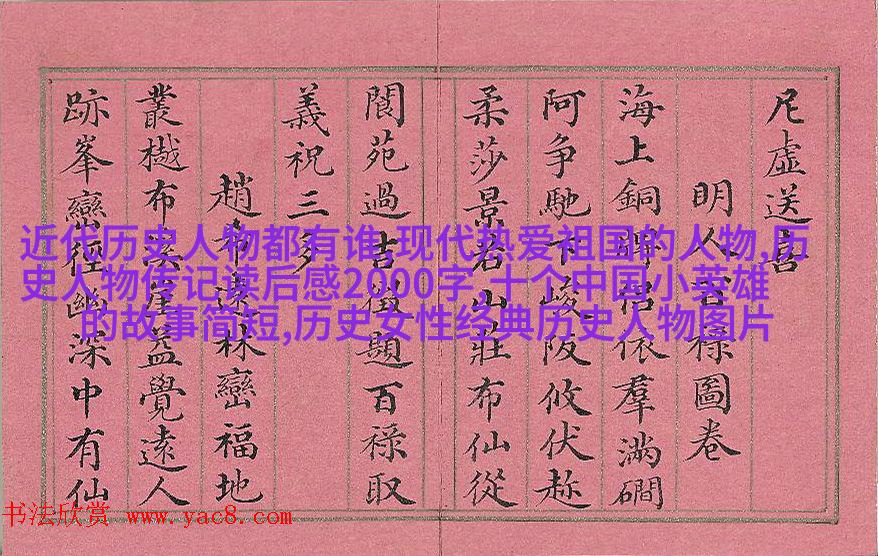 虛送喜
明人百祿圖卷
海上銅依羣滿磵
阿爭馳下峻阪攸伏
柔莎景若山莊布仙從
閬苑過吉徴題百祿取
義祝三多
趙希遠林巒福地
叢樾布溪崖益覺遠人
跡峯巒徑幽深中有仙
近代历史人物都有谁,现代热爱祖国的人物,历
史人物传记读后感2000字,十个中国小英雄
的故事简短,历史女性经典历史人物图片
书法欣赏 www.yac8.com